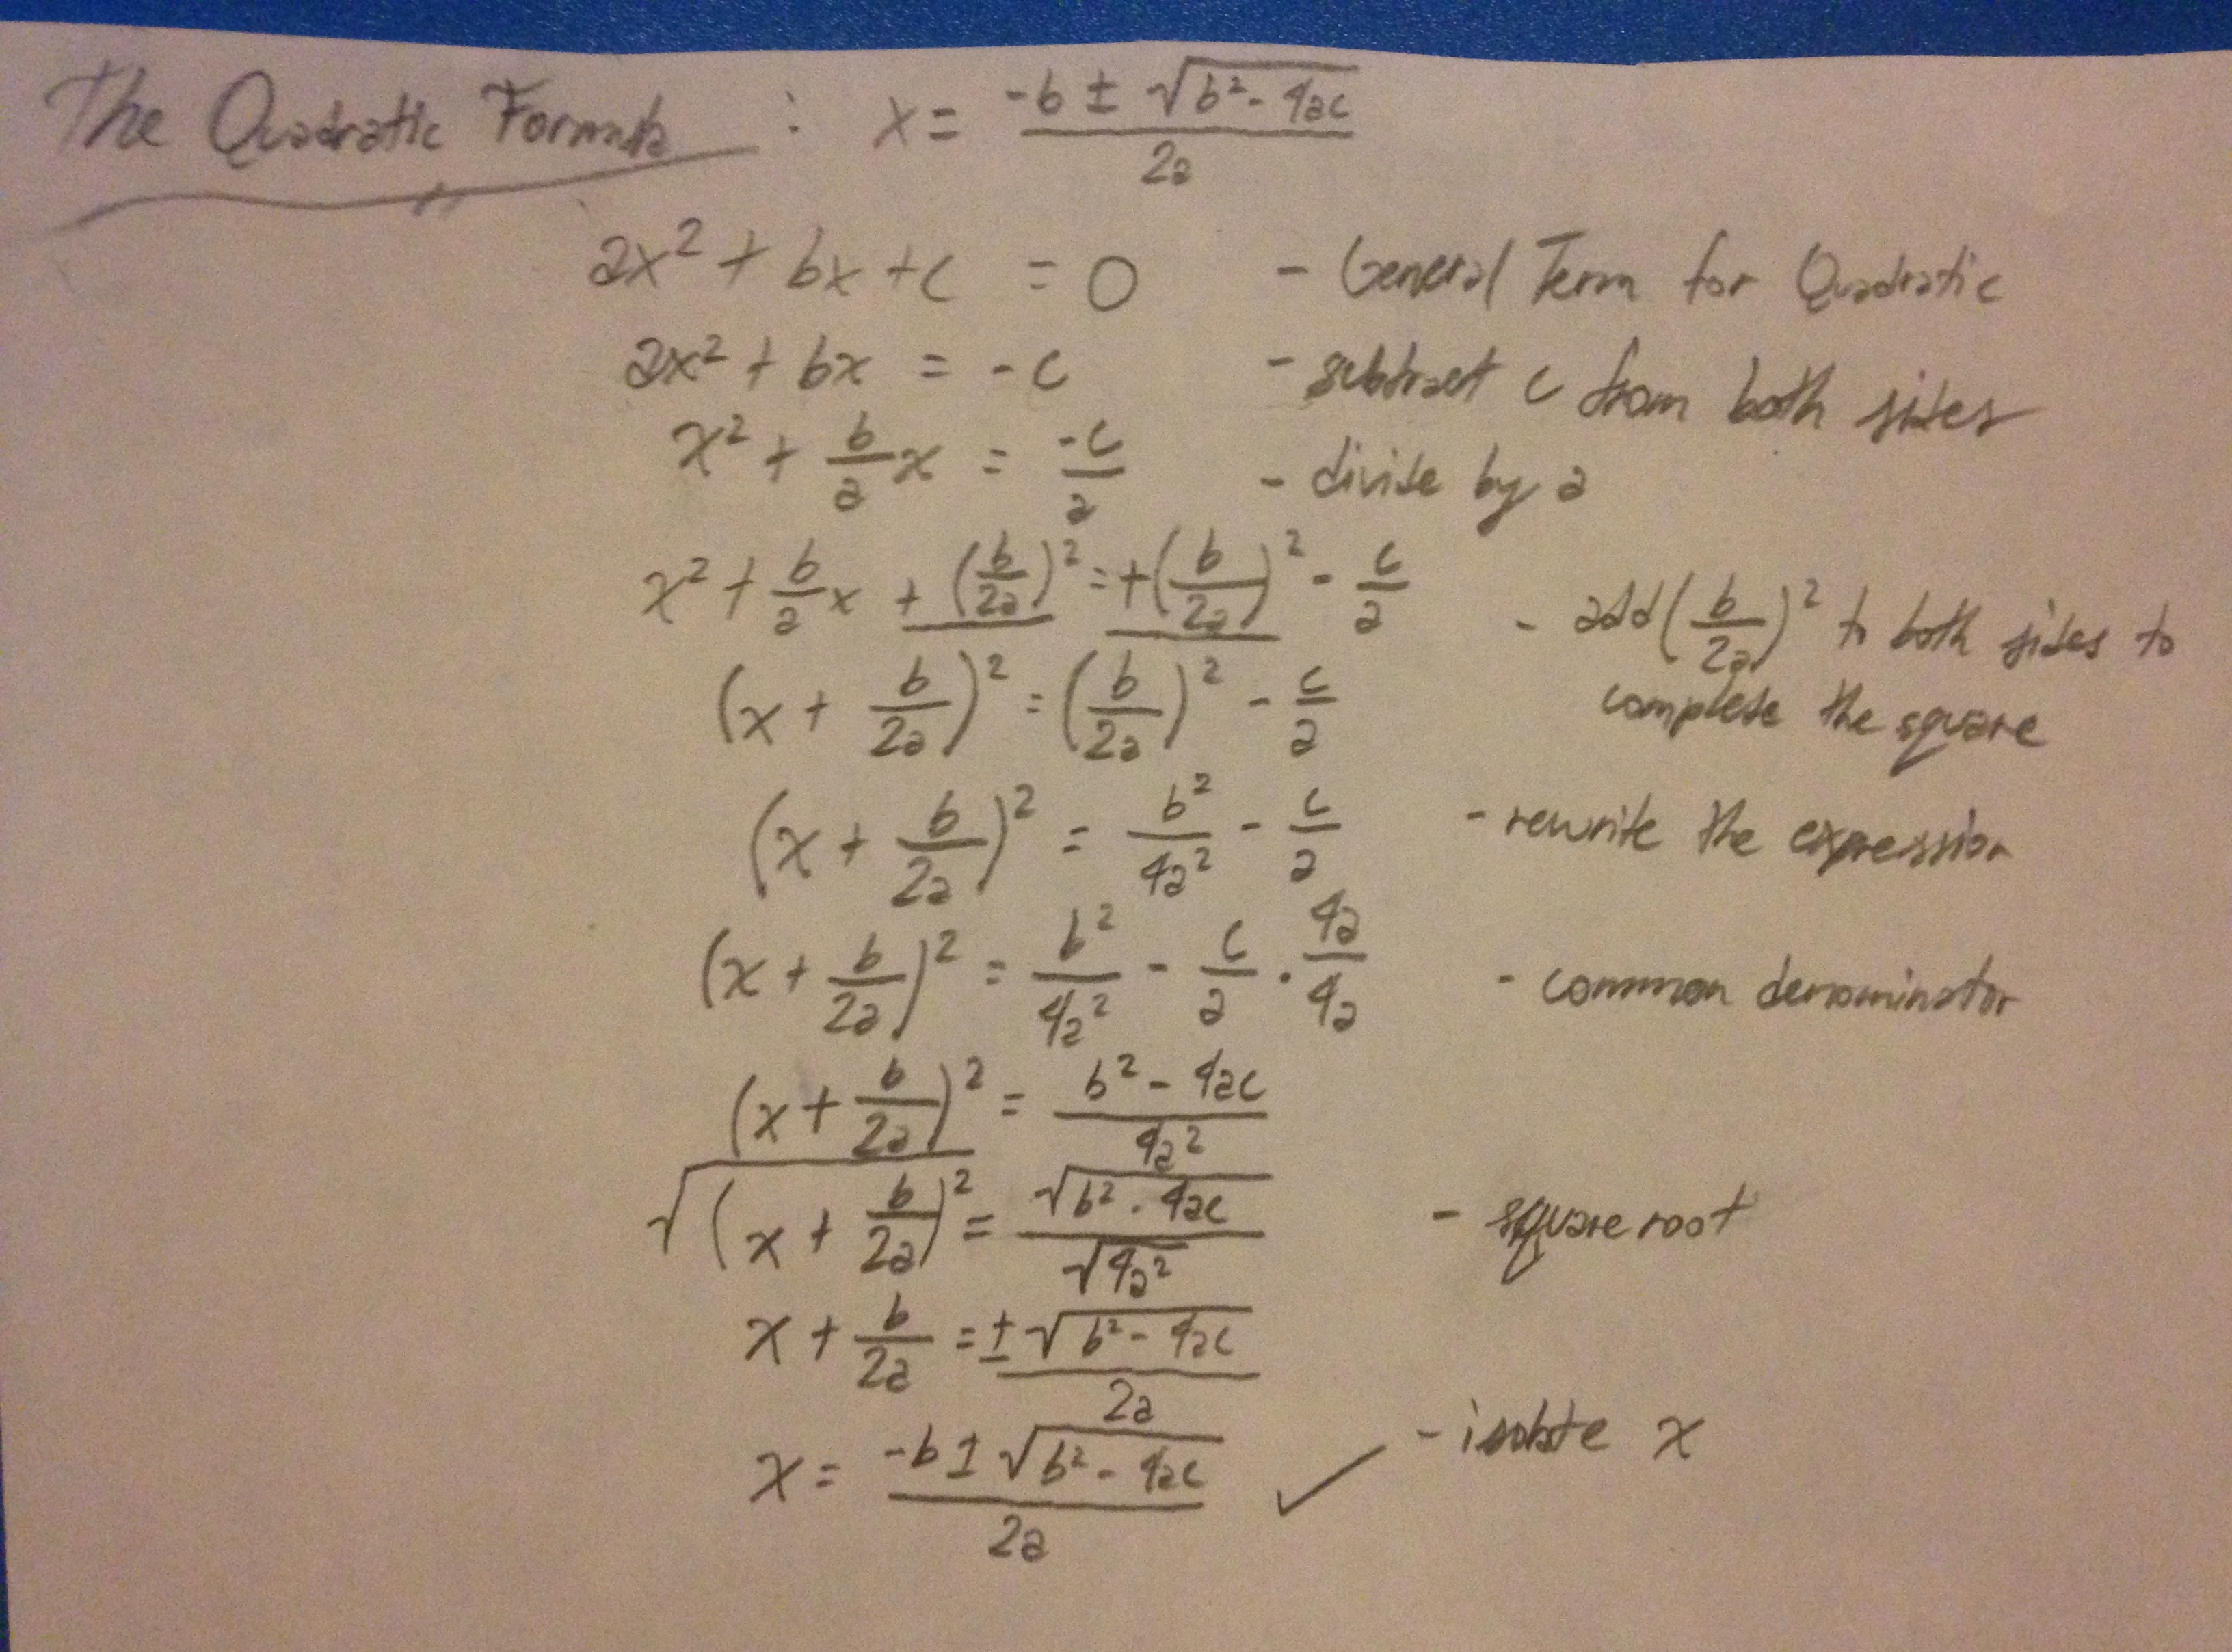 The Quadratic Formula : x = (-b ± √(b² - 4ac)) / 2a
ax² + bx + c = 0 - General Term for Quadratic
ax² + bx = -c - subtract c from both sides
x² + b/a x = -c/a - divide by a
x² + b/a x + (b/2a)² = +(b/2a)² - c/a - add (b/2a)² to both sides to
complete the square
(x + b/2a)² = (b/2a)² - c/a
(x + b/2a)² = b²/4a² - c/a - rewrite the expression
(x + b/2a)² = b²/4a² - c/a · 4a/4a - common denominator
(x + b/2a)² = (b² - 4ac)/4a²
√(x + b/2a)² = √(b² - 4ac) / √(4a²) - square root
x + b/2a = ±√(b² - 4ac) / 2a
x = (-b ± √(b² - 4ac)) / 2a ✓ - isolate x